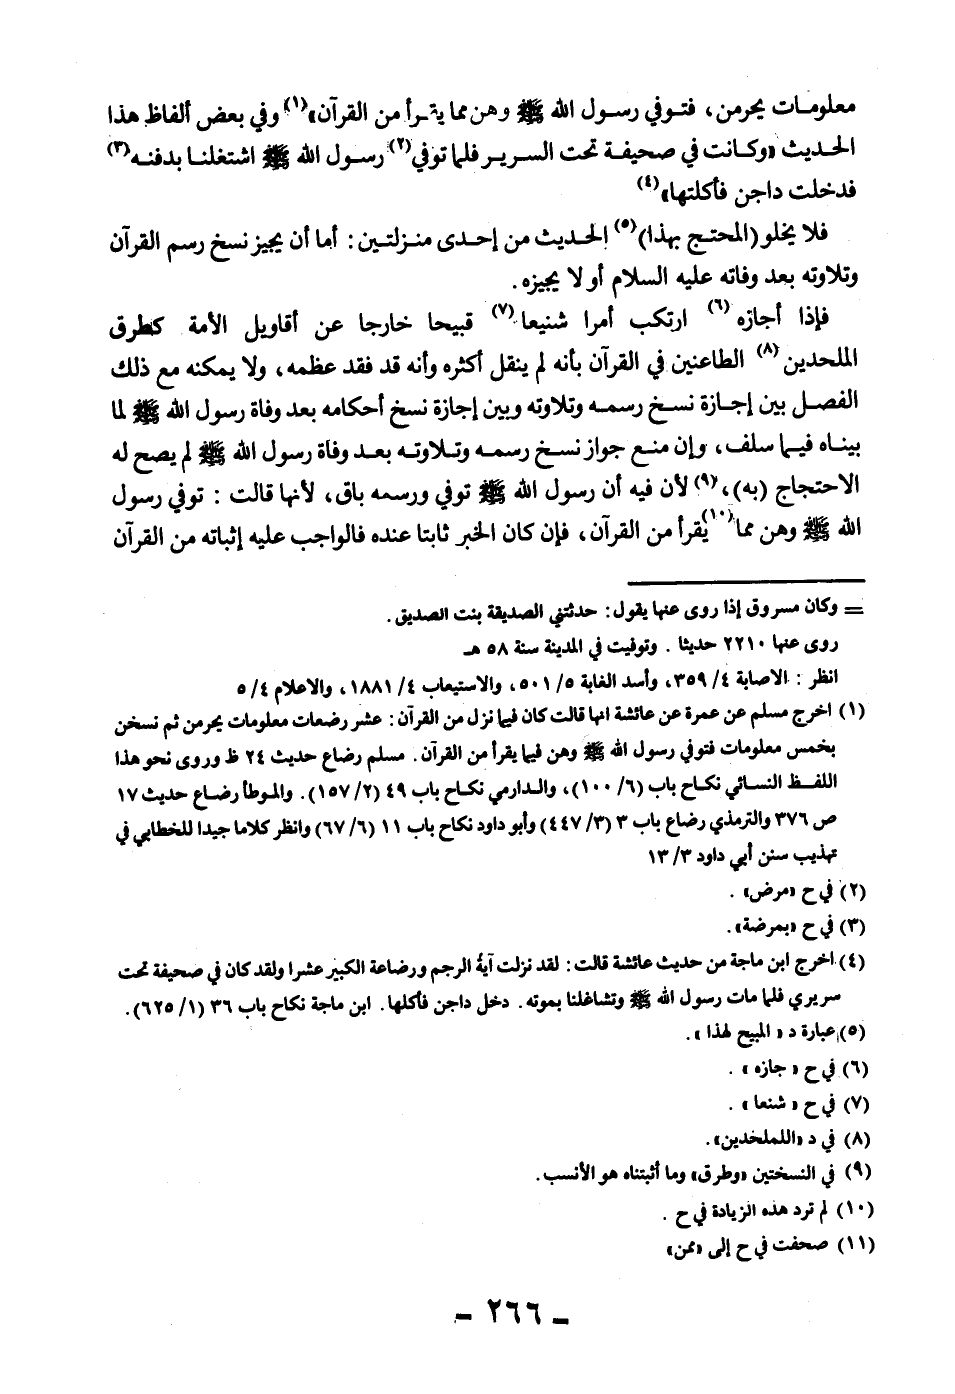 معلومات يحرمن، فتوفي رسول الله ﷺ وهن مما يقرأ من القرآن»(١) وفي بعض ألفاظ هذا
الحديث «وكانت في صحيفة تحت السرير فلما توفي(٢) رسول الله ﷺ اشتغلنا بدفنه(٣)
فدخلت داجن فأكلتها»(٤)
فلا يخلو (المحتج بهذا)(٥) الحديث من إحدى منزلتين: أما أن يجيز نسخ رسم القرآن
وتلاوته بعد وفاته عليه السلام أو لا يجيزه.
فإذا أجازه(٦) ارتكب أمرا شنيعا(٧) قبيحا خارجا عن أقاويل الأمة كطرق
الملحدين(٨) الطاعنين في القرآن بأنه لم ينقل أكثره وأنه قد فقد عظمه، ولا يمكنه مع ذلك
الفصل بين إجازة نسخ رسمه وتلاوته وبين إجازة نسخ أحكامه بعد وفاة رسول الله ﷺ لما
بيناه فيما سلف، وإن منع جواز نسخ رسمه وتلاوته بعد وفاة رسول الله ﷺ لم يصح له
الاحتجاج (به)،(٩) لأن فيه أن رسول الله ﷺ توفي ورسمه باق، لأنها قالت : توفي رسول
الله ﷺ وهن مما(١٠) يقرأ من القرآن، فإن كان الخبر ثابتا عنده فالواجب عليه إثباته من القرآن
= وكان مسروق إذا روى عنها يقول: حدثتني الصديقة بنت الصديق.
روى عنها ٢٢١٠ حديثا . وتوفيت في المدينة سنة ٥٨ هـ
انظر : الاصابة ٤/ ٣٥٩، وأسد الغابة ٥/ ٥٠١، والاستيعاب ٤/ ١٨٨١، والاعلام ٤/ ٥
(١) اخرج مسلم عن عمرة عن عائشة انها قالت كان فيما نزل من القرآن: عشر رضعات معلومات يحرمن ثم نسخن
بخمس معلومات فتوفي رسول الله ﷺ وهن فيما يقرأ من القرآن. مسلم رضاع حديث ٢٤ ظ وروى نحو هذا
اللفظ النسائي نكاح باب (٦/ ١٠٠)، والدارمي نكاح باب ٤٩ (٢/ ١٥٧). والموطأ رضاع حديث ١٧
ص ٣٧٦ والترمذي رضاع باب ٣ (٣/ ٤٤٧) وأبو داود نكاح باب ١١ (٦/ ٦٧) وانظر كلاما جيدا للخطابي في
تهذيب سنن أبي داود ٣/ ١٣
(٢) في ح «مرض» .
(٣) في ح «بمرضة».
(٤) اخرج ابن ماجة من حديث عائشة قالت: لقد نزلت آية الرجم ورضاعة الكبير عشرا ولقد كان في صحيفة تحت
سريري فلما مات رسول الله ﷺ وتشاغلنا بموته. دخل داجن فأكلها. ابن ماجة نكاح باب ٣٦ (١/ ٦٢٥).
(٥) عبارة د « المبيح لهذا ».
(٦) في ح « جازه » .
(٧) في ح « شنعا » .
(٨) في د «اللملخدين».
(٩) في النسختين «وطرق» وما أثبتناه هو الأنسب.
(١٠) لم ترد هذه الزيادة في ح .
(١١) صحفت في ح إلى «ممن»
– ٢٦٦ –